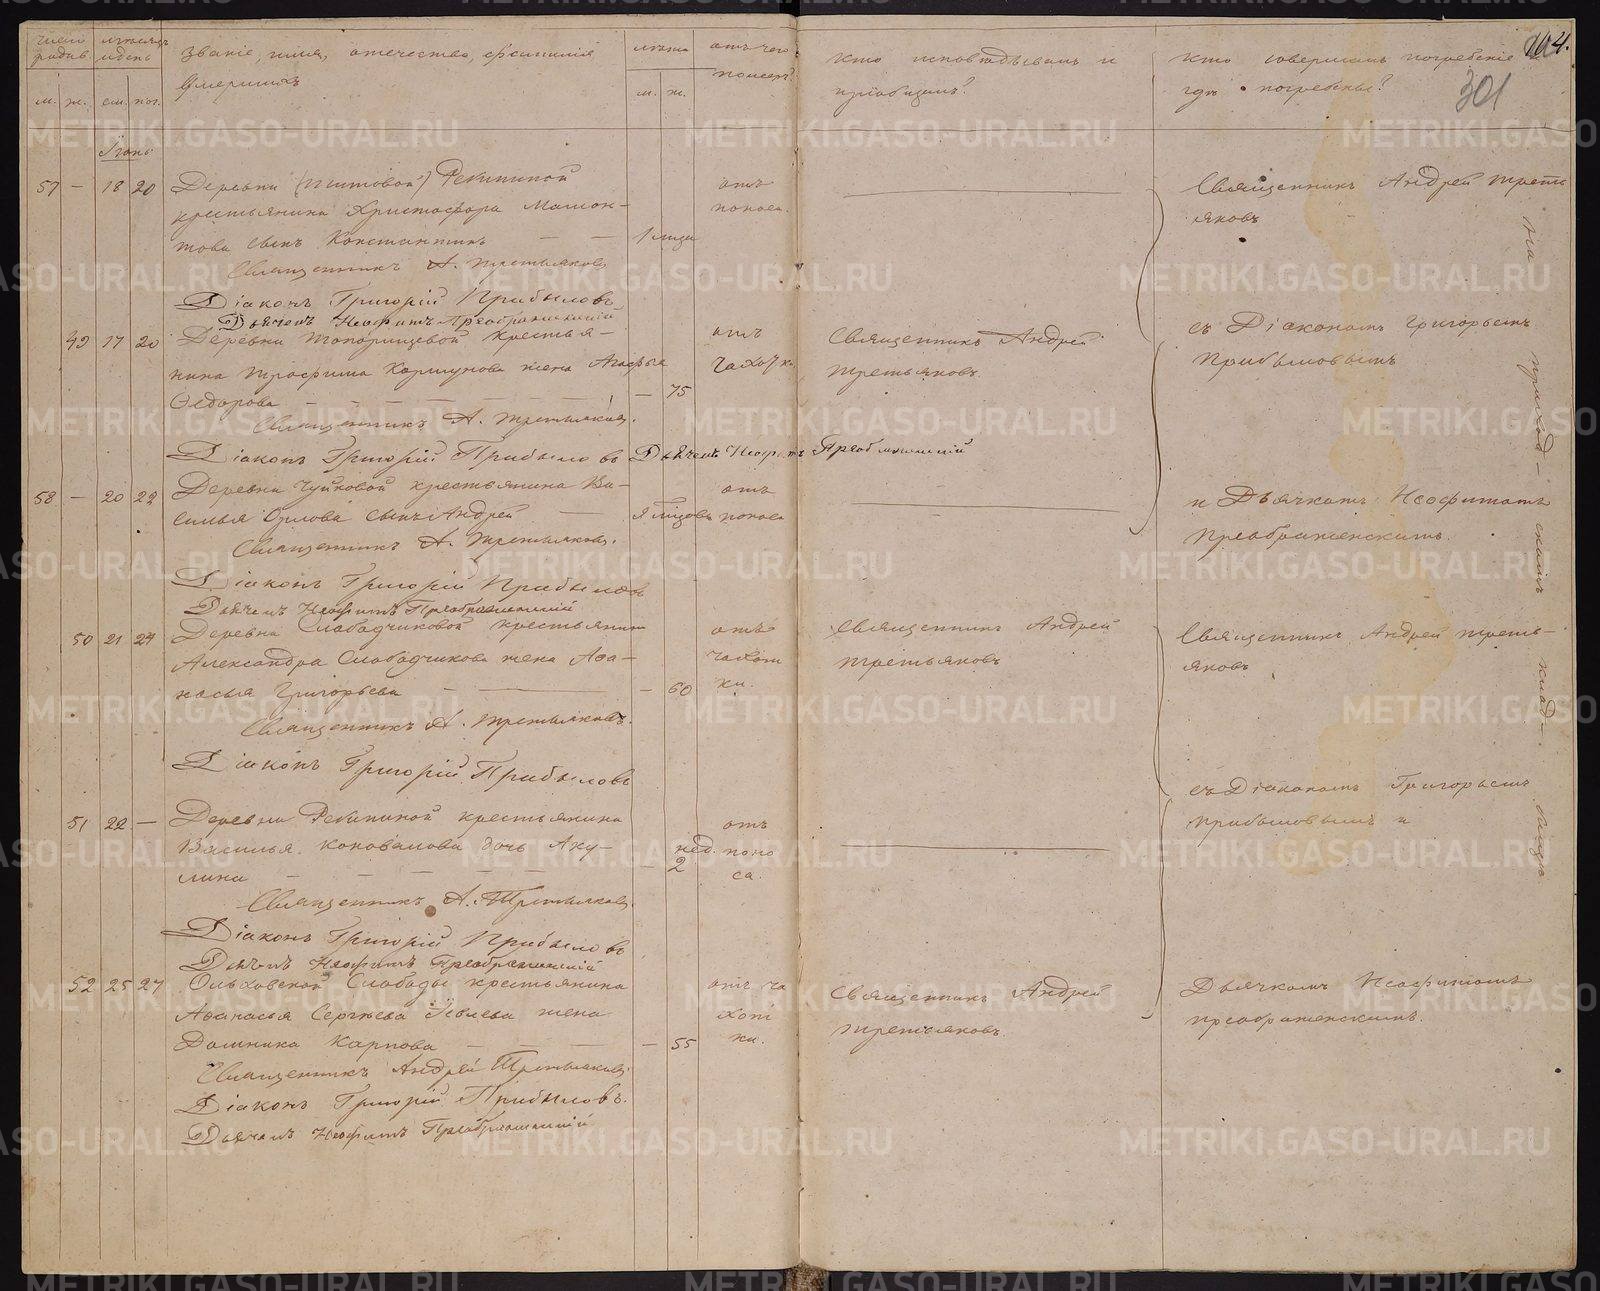 число родив. мѣсяцъ и день Званіе, имя, отечество, фамилія лѣта отъ чего Кто исповѣдывалъ и Кто совершалъ погребеніе 104.
умершихъ померъ? пріобщалъ? гдѣ погребены? 301
м. ж. см. пог. м. ж.
Іюнь
57 — 18 20 Деревни (Титовой) Рекининой отъ Священникъ Андрей Треть
крестьянина Христофора Мамон- поноса. яковъ
това сынъ Константинъ — — 1 мца
Священникъ А. Третьяковъ
Діаконъ Григорій Прибыловъ
Дьячекъ Неофитъ Преображенскій
49 17 20 Деревни Топорищевой крестья- отъ Священникъ Андрей съ Діакономъ Григорьемъ
нина Трофима Коршунова жена Агафья чахотки Третьяковъ. Прибыловымъ
Ѳедорова — — — — 75
Священникъ А. Третьяковъ.
Діаконъ Григорій Прибыловъ Дьячекъ Неофитъ Преображенскій
58 — 20 22 Деревни Чуйковой крестьянина Ва- отъ и Дьячкомъ Неофитомъ
силья Орлова сынъ Андрей — поноса Преображенскимъ.
Священникъ А. Третьяковъ.
Діаконъ Григорій Прибыловъ
Дьячекъ Неофитъ Преображенскій
50 21 24 Деревни Слободчиковой крестьянина отъ Священникъ Андрей Священникъ Андрей Треть-
Александра Слободчикова жена Аѳа- чахот Третьяковъ яковъ.
насья Григорьева — — — 60 ки.
Священникъ А. Третьяковъ.
Діаконъ Григорій Прибыловъ
съ Діакономъ Григорьемъ
51 22 — Деревни Рекининой крестьянина отъ Прибыловымъ и
Василья Коновалова дочь Аку- нед. поно
лина — — — — — 2 са.
Священникъ А. Третьяковъ.
Діаконъ Григорій Прибыловъ
Дьячекъ Неофитъ Преображенскій
52 25 27 Ольховской Слободы крестьянина отъ ча Священникъ Андрей Дьячкомъ Неофитомъ
Аѳанасья Сергѣева жена хот Третьяковъ. Преображенскимъ.
Домника Карпова — — — — 55 ки.
Священникъ Андрей Третьяковъ.
Діаконъ Григорій Прибыловъ.
Дьячекъ Неофитъ Преображенскій
на приход-скомъ клад-бищѣ
METRIKI.GASO-URAL.RU